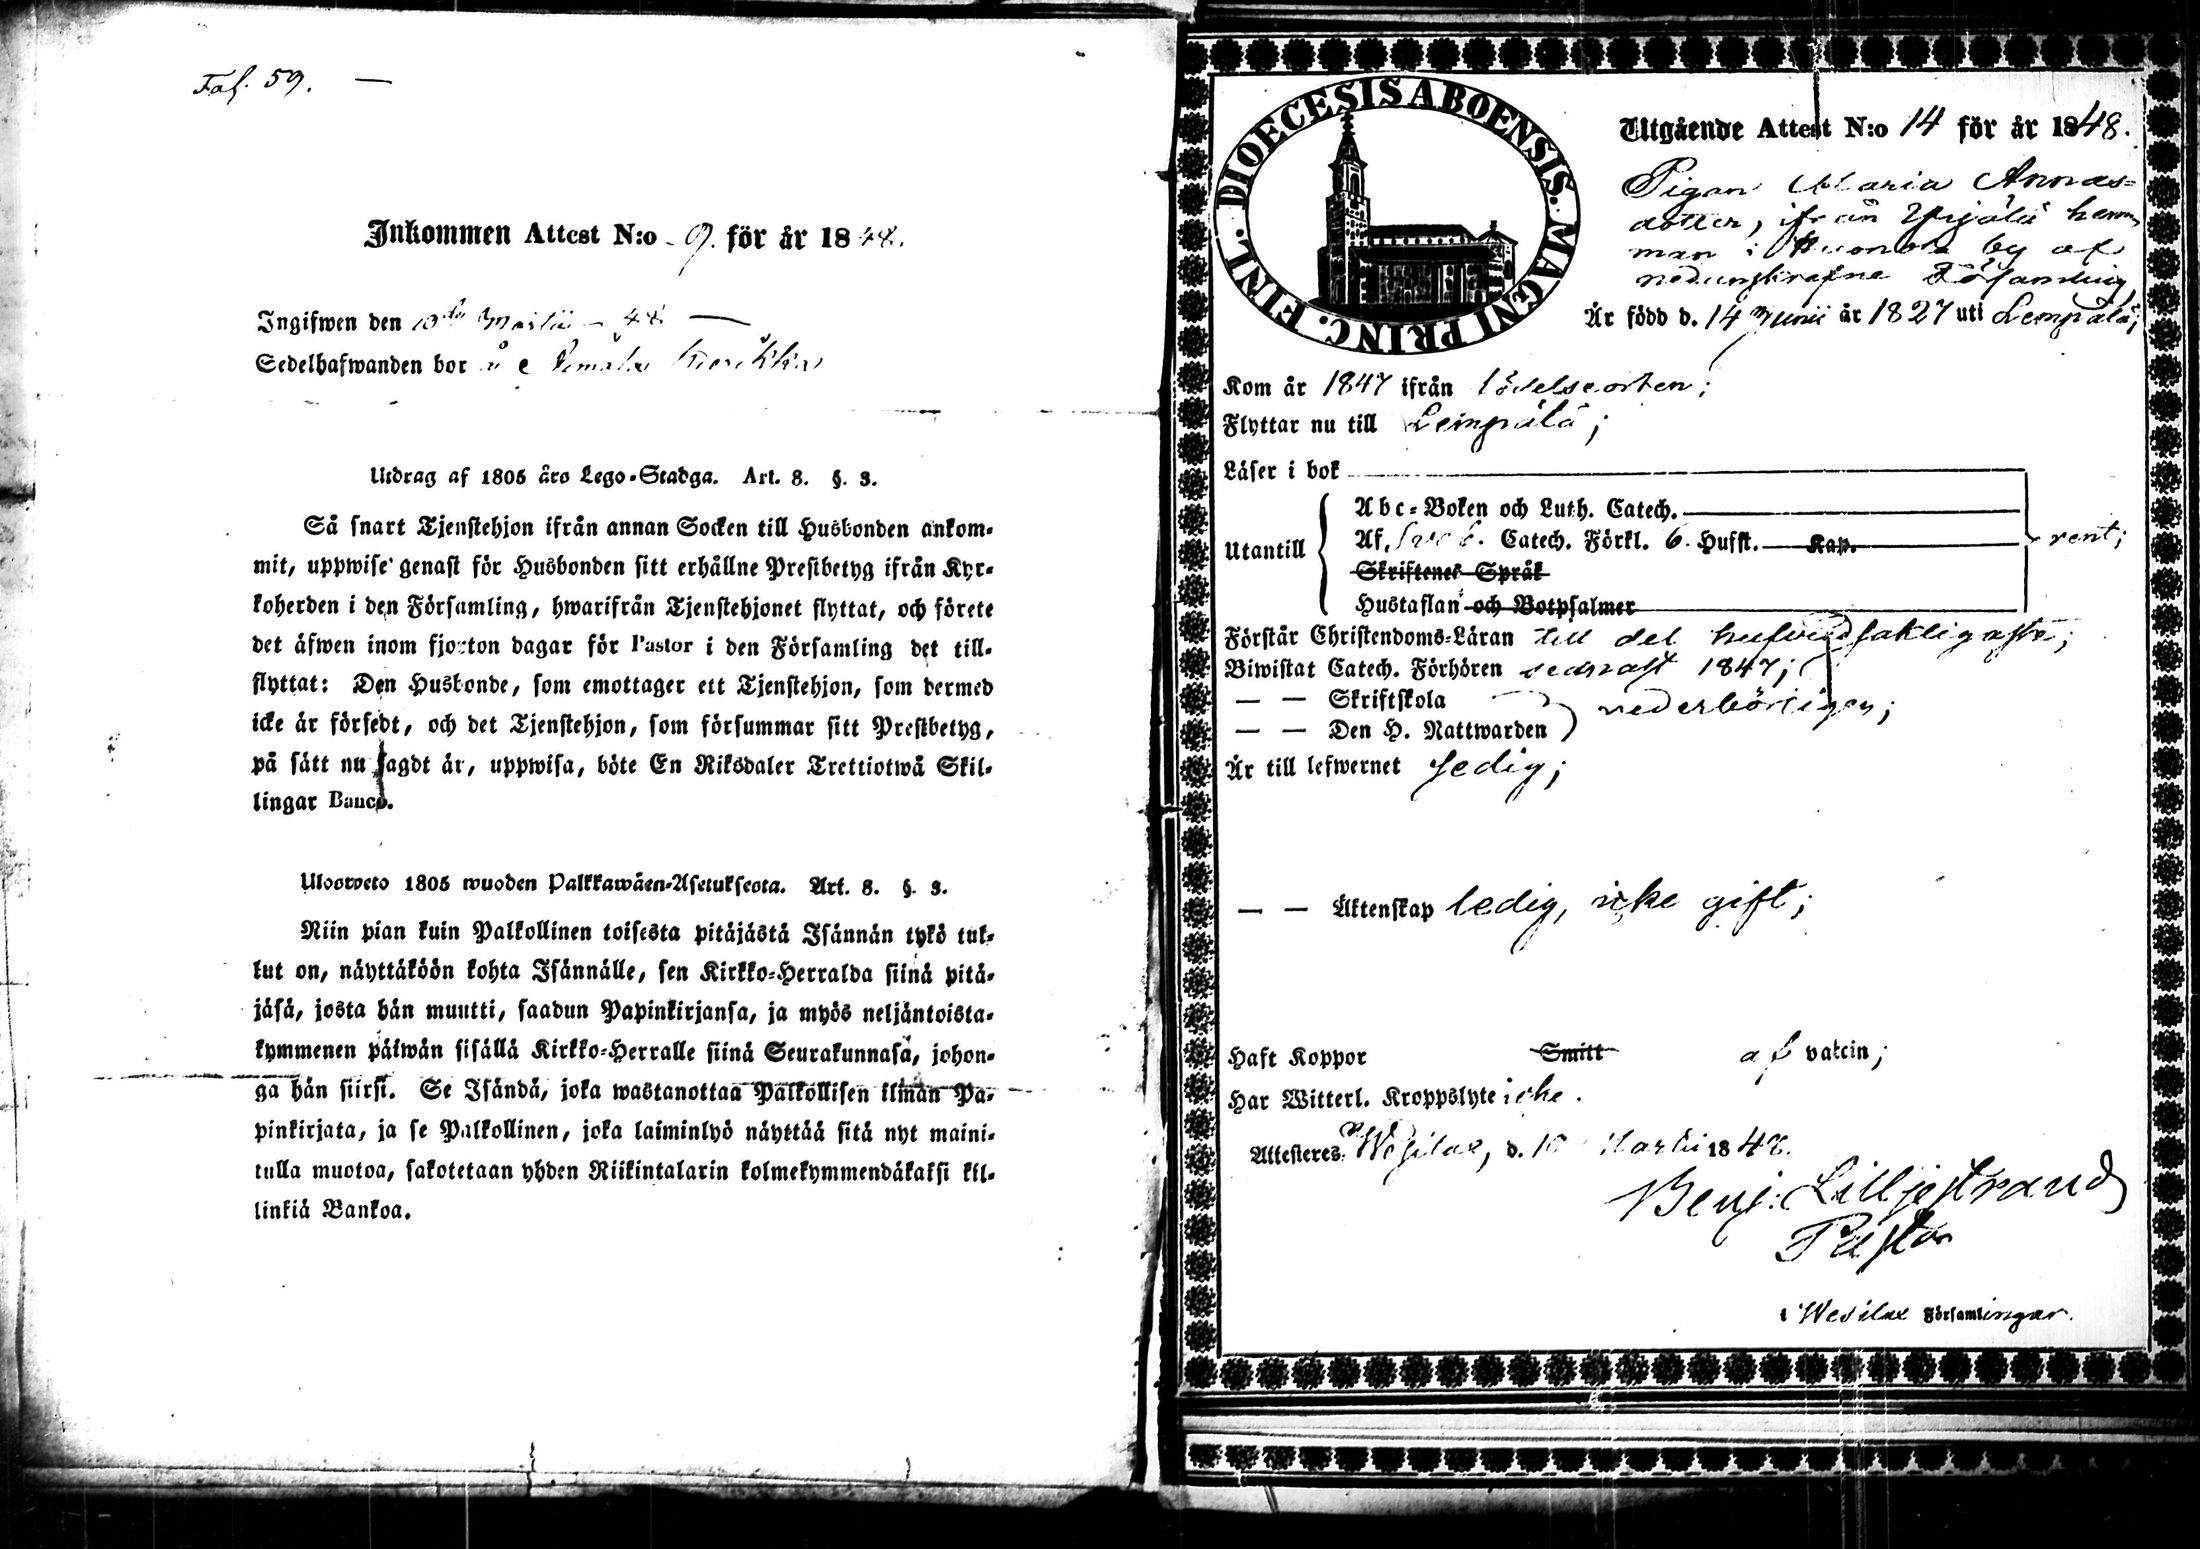 Fol. 59. —
Inkommen Attest N:o 9. för år 1848.
Ingifwen den 10de Martii – 48 —
Sedelhafwanden bor
Utdrag af 1805 års Lego-Stadga. Art. 8. §. 3.
Så snart Tjenstehjon ifrån annan Socken till Husbonden ankom-
mit, uppwise genast för Husbonden sitt erhållne Prestbetyg ifrån Kyr-
koherden i den Församling, hwarifrån Tjenstehjonet flyttat, och förete
det äfwen inom fjorton dagar för Pastor i den Församling det till-
flyttat: Den Husbonde, som emottager ett Tjenstehjon, som dermed
icke är försedt, och det Tjenstehjon, som försummar sitt Prestbetyg,
på sätt nu sagdt är, uppwisa, böte En Riksdaler Trettiotwå Skil-
lingar Banco.
Ulosweto 1805 wuoden Palkkawäen-Asetuksesta. Art. 8. §. 3.
Niin pian kuin Palkollinen toisesta pitäjästä Isännän tykö tul-
lut on, näyttäköön kohta Isännälle, sen Kirkko-Herralda siinä pitä-
jäsä, josta hän muutti, saadun Papinkirjansa, ja myös neljäntoista-
kymmenen päiwän sisällä Kirkko-Herralle siinä Seurakunnasa, johon-
ga hän siirsi. Se Isändä, joka wastanottaa Palkollisen ilman Pa-
pinkirjata, ja se Palkollinen, joka laiminlyö näyttää sitä nyt maini-
tulla muotoa, sakotetaan yhden Riikintalarin kolmekymmendäkaksi kil-
linkiä Bankoa.
DIOECESIS ABOENSIS. MAGNI PRINC. FINL.
Utgående Attest N:o 14 för år 1848.
Pigan Maria Annas-
dotter, ifrån Yrjälä hem-
man i by af
nedanskrefne Församling,
Är född d. 14 Junii år 1827 uti Lempälä;
Kom år 1847 ifrån födelseorten;
Flyttar nu till Lempälä;
Läser i bok
Abc-Boken och Luth. Catech.
Utantill Af Sveb. Catech. Förkl. 6. Hufst. Kap. rent;
Skriftenes Språk
Hustaflan och Botpsalmer
Förstår Christendoms-Läran till det hufvudsakligaste;
Biwistat Catech. Förhören sednast 1847;
— — Skriftskola
— — Den H. Nattwarden vederbörligen;
Är till lefwernet ledig;
— — Äktenskap ledig, icke gift;
Haft Koppor Smitt af vaccin;
Har Witterl. Kroppslyte icke.
Attesteres Wesilax, d. 10 Martii 1848.
Benj: Lilljestrand
Pastor
i Wesilax Församlingar.